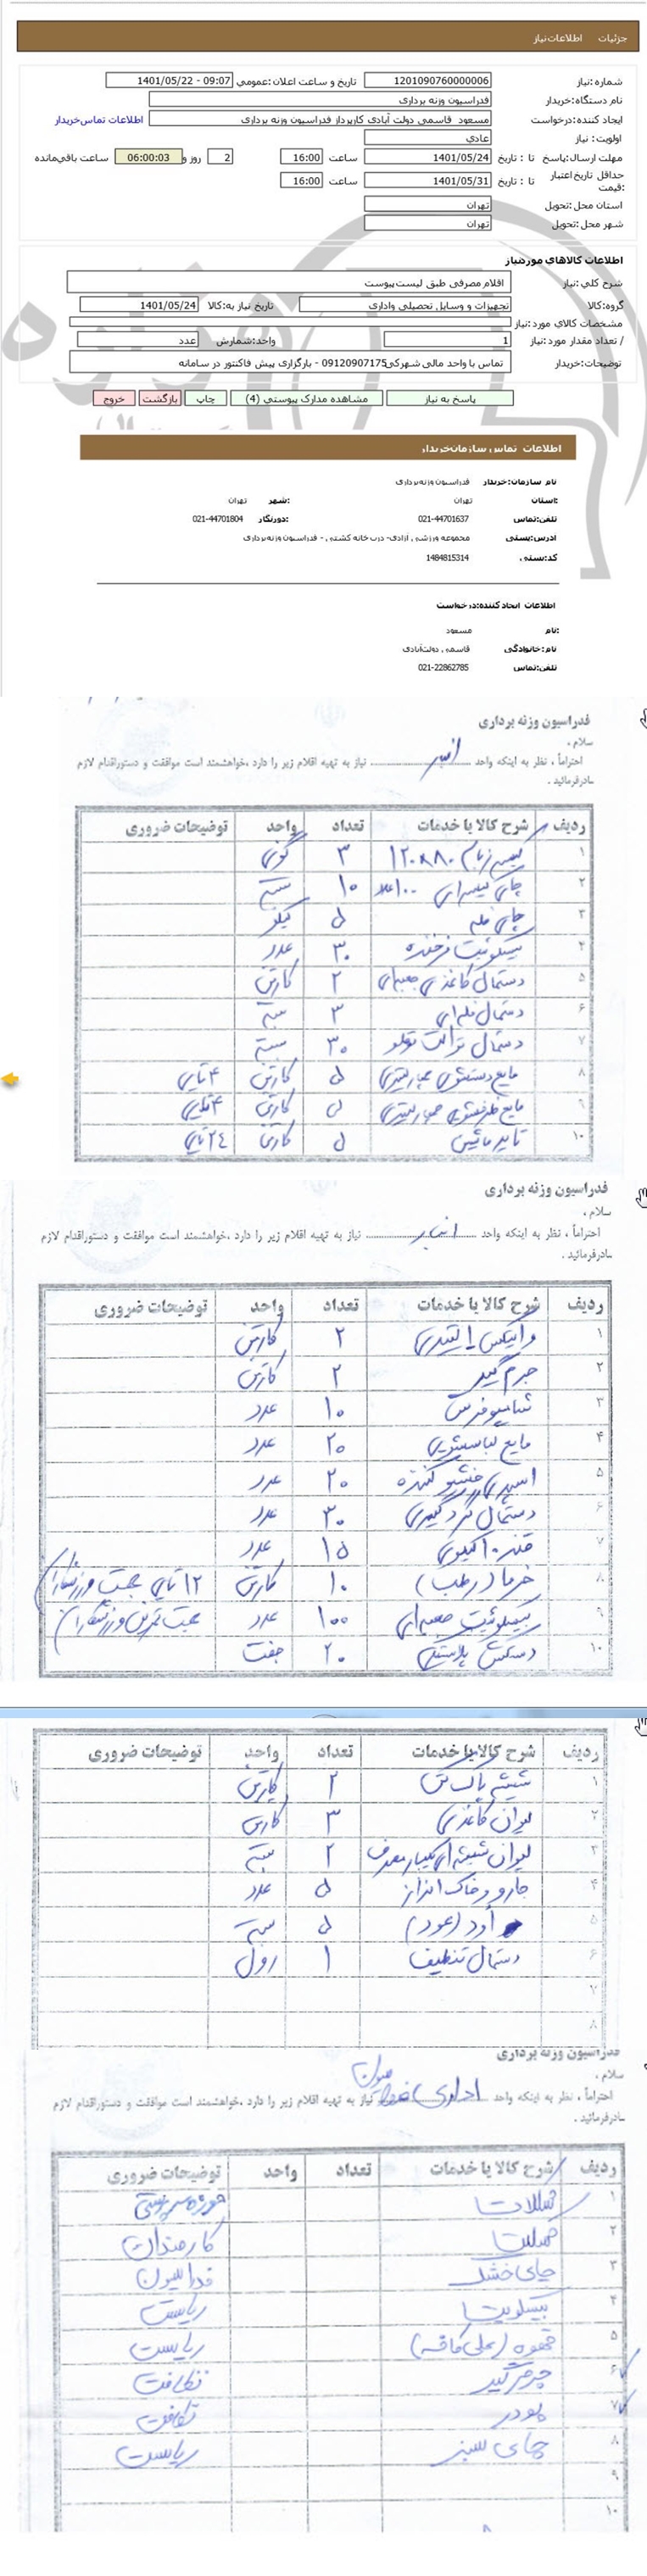 جزئیات اطلاعات نیاز
شماره نیاز: 1201090760000006 تاریخ و ساعت اعلان عمومی: 1401/05/22 - 09:07
نام دستگاه خریدار: فدراسیون وزنه برداری
ایجاد کننده درخواست: مسعود قاسمی دولت آبادی کارپرداز فدراسیون وزنه برداری اطلاعات تماس خریدار
اولویت نیاز: عادی
مهلت ارسال پاسخ: تا تاریخ: 1401/05/24 ساعت 16:00 2 روز و 06:00:03 ساعت باقی مانده
حداقل تاریخ اعتبار قیمت: تا تاریخ: 1401/05/31 ساعت 16:00
استان محل تحویل: تهران
شهر محل تحویل: تهران
اطلاعات کالاهای مورد نیاز
شرح کلی نیاز: اقلام مصرفی طبق لیست پیوست
گروه کالا: تجهیزات و وسایل تحصیلی واداری تاریخ نیاز به کالا: 1401/05/24
مشخصات کالای مورد نیاز:
/ تعداد مقدار مورد نیاز: 1 واحد شمارش: عدد
توضیحات خریدار: تماس با واحد مالی شهرکی 09120907175 - بارگزاری پیش فاکتور در سامانه
پاسخ به نیاز مشاهده مدارک پیوستی (4) چاپ بازگشت خروج
اطلاعات تماس سازمان خریدار
نام سازمان خریدار: فدراسیون وزنه برداری
استان: تهران شهر: تهران
تلفن تماس: 021-44701637 دورنگار: 021-44701804
ادرس پستی: مجموعه ورزشی آزادی- درب خانه کشتی - فدراسیون وزنه برداری
کد پستی: 1484815314
اطلاعات ایجاد کننده درخواست
نام: مسعود
نام خانوادگی: قاسمی دولت آبادی
تلفن تماس: 021-22862785
فدراسیون وزنه برداری
سلام ،
احتراماً ، نظر به اینکه واحد انبار نیاز به تهیه اقلام زیر را دارد ،خواهشمند است موافقت و دستوراقدام لازم
صادرفرمائید .
ردیف شرح کالا یا خدمات تعداد واحد توضیحات ضروری
۱ ۸۰*۱۲۰ ۳ گونی
۲ چای کیسه ای ۱۰۰ عدد ۱۰ بسته
۳ چای فله ۵ کیلو
۴ بیسکوئیت فرخنده ۳۰ عدد
۵ دستمال کاغذی جعبه ای ۲ کارتن
۶ دستمال فله ای ۳ بسته
۷ دستمال توالت دوقلو ۳۰ بسته
۸ مایع دستشویی چهار لیتری ۵ کارتن ۴ تایی
۹ مایع ظرفشویی چهار لیتری ۵ کارتن ۴ تایی
۱۰ تاید ماشین ۵ کارتن ۲۴ تایی
فدراسیون وزنه برداری
سلام ،
احتراماً ، نظر به اینکه واحد انبار نیاز به تهیه اقلام زیر را دارد ،خواهشمند است موافقت و دستوراقدام لازم
صادرفرمائید .
ردیف شرح کالا یا خدمات تعداد واحد توضیحات ضروری
۱ وایتکس ۴ لیتری ۲ کارتن
۲ جرم گیر ۲ کارتن
۳ شامپو فرش ۱۰ عدد
۴ مایع لباسشویی ۲۰ عدد
۵ اسپری خوشبو کننده ۲۰ عدد
۶ دستمال گردگیری ۳۰ عدد
۷ قند ۱۰ کیلویی ۱۵ عدد
۸ خرما (رطب) ۱۰ کارتن ۱۲ تایی جهت ورزشکاران
۹ بیسکوئیت جعبه ای ۱۰۰ عدد جهت تمرین ورزشکاران
۱۰ دستکش پلاستیکی ۲۰ جفت
ردیف شرح کالا یا خدمات تعداد واحد توضیحات ضروری
۱ شیشه پاک کن ۲ کارتن
۲ لیوان کاغذی ۳ کارتن
۳ لیوان شیشه ای یکبار مصرف ۲ بسته
۴ جارو و خاک انداز ۵ عدد
۵ اود (عود) ۵ بسته
۶ دستمال تنظیف ۱ رول
۷
۸
فدراسیون وزنه برداری
سلام ،
احتراماً ، نظر به اینکه واحد اداری نیاز به تهیه اقلام زیر را دارد ،خواهشمند است موافقت و دستوراقدام لازم
صادرفرمائید .
ردیف شرح کالا یا خدمات تعداد واحد توضیحات ضروری
۱ شکلات
۲ کارمندان
۳ چای خشک فدراسیون
۴ بیسکویت ریاست
۵ قهوه ریاست
۶ جرمگیر نظافت
۷ پودر نظافت
۸ چای سبز ریاست
۹
۱۰